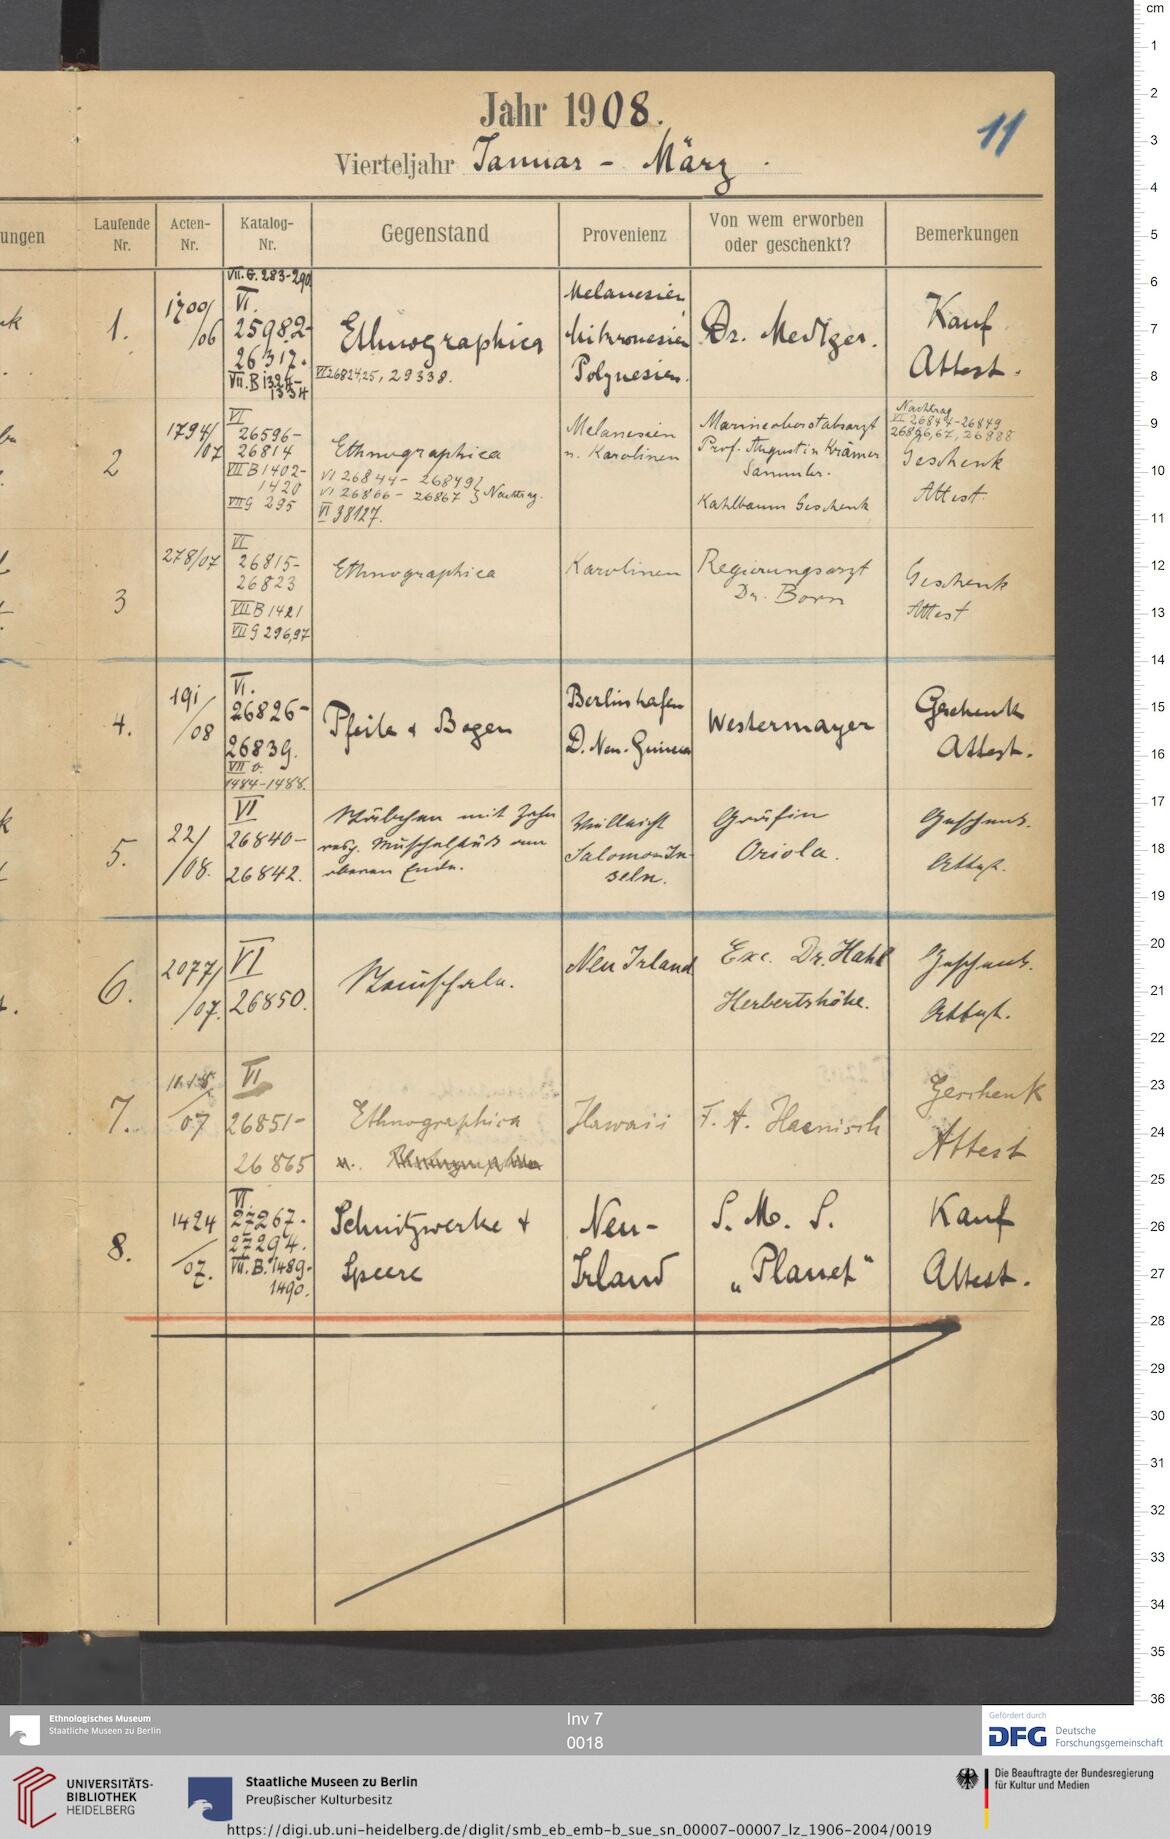 Jahr 1908.
11
Vierteljahr Januar - März.
ungen
Laufende Nr.
Acten-Nr.
Katalog-Nr.
Gegenstand
Provenienz
Von wem erworben oder geschenkt?
Bemerkungen
1.
1700/06
VII. G. 283-290
VI.
25982-
26312.
VII. B 1324-
1334
Ethnographica
VI 26824,25, 29338.
Melanesien
Mikronesien
Polynesien.
Kauf
Attest.
2
1794/07
VI
26596-
26814
VII B 1402-
1420
VII G 295
Ethnographica
VI 26844 - 26849
VI 26866 - 26867 } Nachtrag.
VI 38127.
Melanesien
u. Karolinen
Marineoberstabsarzt
Prof. Augustin Krämer
Sammler.
Kahlbaum Geschenk
Nachtrag
VI 26844-26849
26866,67, 26888
Geschenk
Attest.
3
278/07
VI
26815-
26823
VII B 1421
VII G 296,97
Ethnographica
Karolinen
Regierungsarzt
Dr. Born
Geschenk
Attest
4.
191/08
VI.
26826-
26839.
1484-1488.
Pfeile & Bogen
Berlinhafen
D. Neu-Guinea
Westermayer
Geschenk
Attest.
5.
22/08.
VI
26840-
26842.
Stäbchen mit Zahn
resp. Muschelstück am
oberen Ende.
Vielleicht
Salomon In-
seln.
Gräfin
Oriola.
Geschenk.
Attest.
6.
2077/07.
VI
26850.
Neu Irland
Exc. Dr. Hahl
Herbertshöhe.
Geschenk.
Attest.
7.
VI
26851-
26865
Ethnographica
u.
Hawaii
F. A. Haenisch
Geschenk
Attest
8.
1424/07.
VI.
27267-
27294.
VII. B. 1489-
1490.
Schnitzwerke &
Speere
Neu-
Irland
S. M. S.
„Planet“
Kauf
Attest.
cm
1
2
3
4
5
6
7
8
9
10
11
12
13
14
15
16
17
18
19
20
21
22
23
24
25
26
27
28
29
30
31
32
33
34
35
36
Ethnologisches Museum
Staatliche Museen zu Berlin
Inv 7
0018
Gefördert durch
DFG Deutsche
Forschungsgemeinschaft
UNIVERSITÄTS-
BIBLIOTHEK
HEIDELBERG
Staatliche Museen zu Berlin
Preußischer Kulturbesitz
Die Beauftragte der Bundesregierung
für Kultur und Medien
https://digi.ub.uni-heidelberg.de/diglit/smb_eb_emb-b_sue_sn_00007-00007_lz_1906-2004/0019